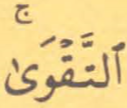 ٱلتَّقۡوَىٰۚ